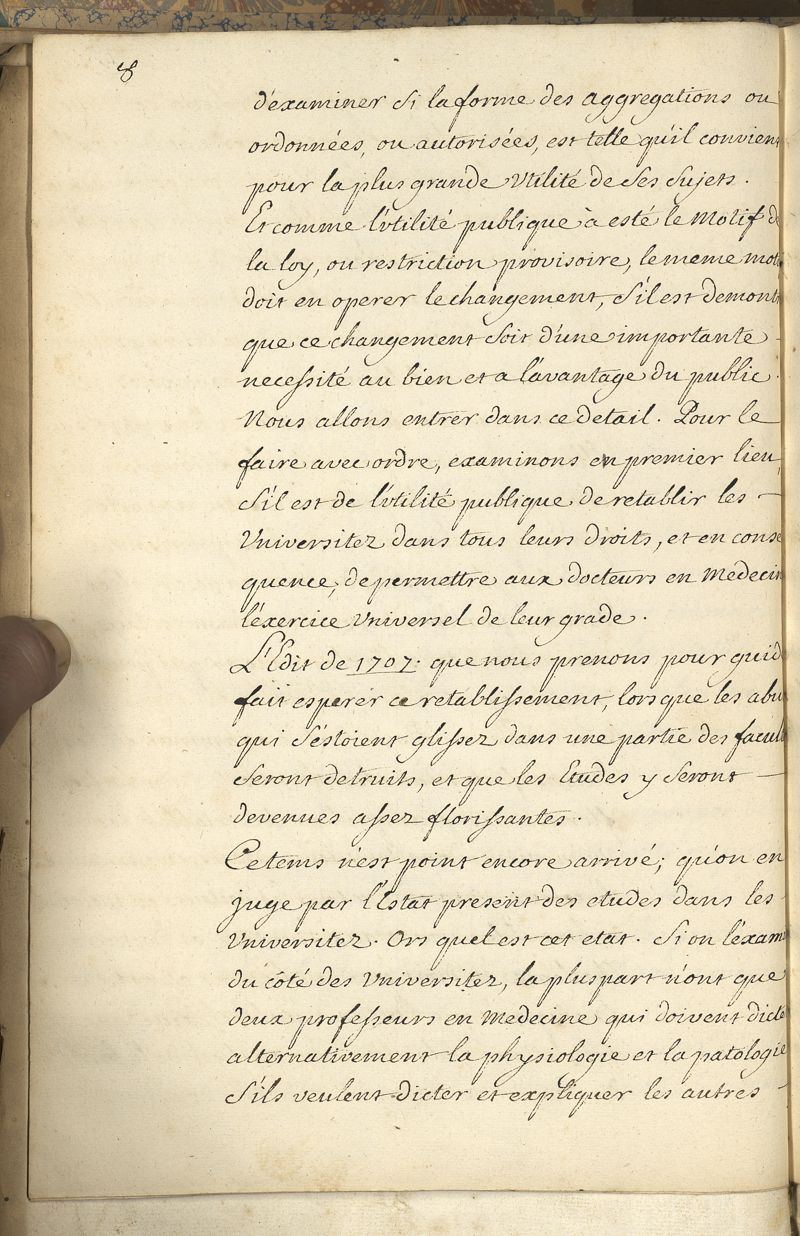 8
d'examiner si la forme des aggregations ou
ordonnées, ou autorisées, est telle qu'il convien
pour la plus grande Vtilité de ses sujets.
Et comme l'vtilité publique à esté le Motif d
la loy, ou restriction provisoire, le meme mot
doit en operer le changement, s'il est demont
que ce changement soit d'une importante
necessité au bien et a l'avantage du public.
Nous allons entrer dans ce detail. Pour le
faire avec ordre, examinons en premier lieu,
s'il est de l'vtilité publique de retablir les
Vniversitez dans tous leurs droits, et en conse
quence, de permettre aux docteurs en Medecin
l'exercice Vniversel de leur grade.
L'Edit de 1707. que nous prenons pour guid
fait esperer ce retablissement, lorsque les abu
qui s'estoient glissez dans une partie des facult
seront detruits, et que les Etudes y seront
devenues assez florissantes.
Ce tems n'est point encore arrivé; qu'on en
juge par l'Estat present des etudes dans les
Vniversitez. Ors quel est cet etat. Si on l'exam
du côté des Vniversitez, la pluspart n'ont que
deux professeurs en Medecine qui doivent dicte
alternativement la physiologie et la patologie
S'ils veulent dicter et expliquer les autres